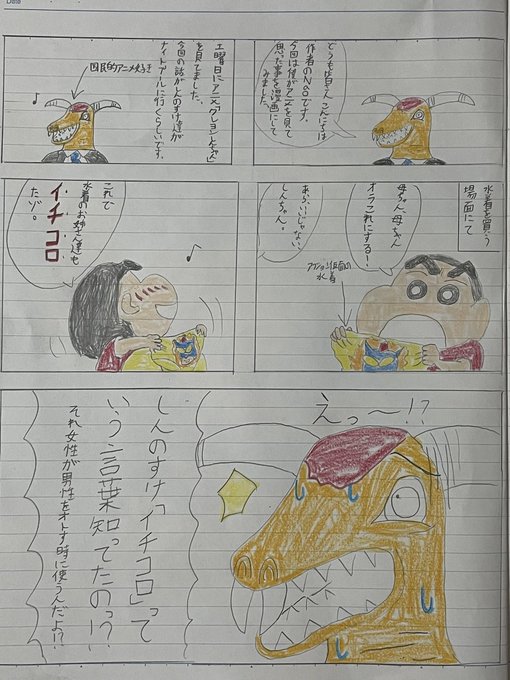 Date
どうも皆さんこんにちは
作者のN80です。
今回は僕がアニメを見て
思った事を漫画にして
みました。
国民的アニメ好き
土曜日にアニメ「クレヨンしんちゃん」
を見てました、
今回の話がしんのすけ達が
ナイトプールに行くらしいです。
♪
水着を買う
場面にて
母ちゃん、母ちゃん
オラこれにする!
あら、いいじゃない、
しんちゃん。
アクション仮面の
水着
♪
これで
水着のお姉さん達も
イチコロ
だゾ。
えっ〜!?
しんのすけ「イチコロ」って
いう言葉知ってたのっ!?
それ女性が男性をオトす時に使うんだよ!?